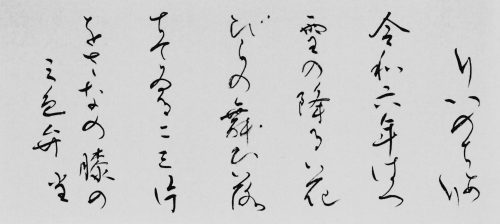 いのちあり
令和六年はつ
雪の降る花
びらの舞ひ落
ちてゐる二三片
をさなの膝の
三色弁当